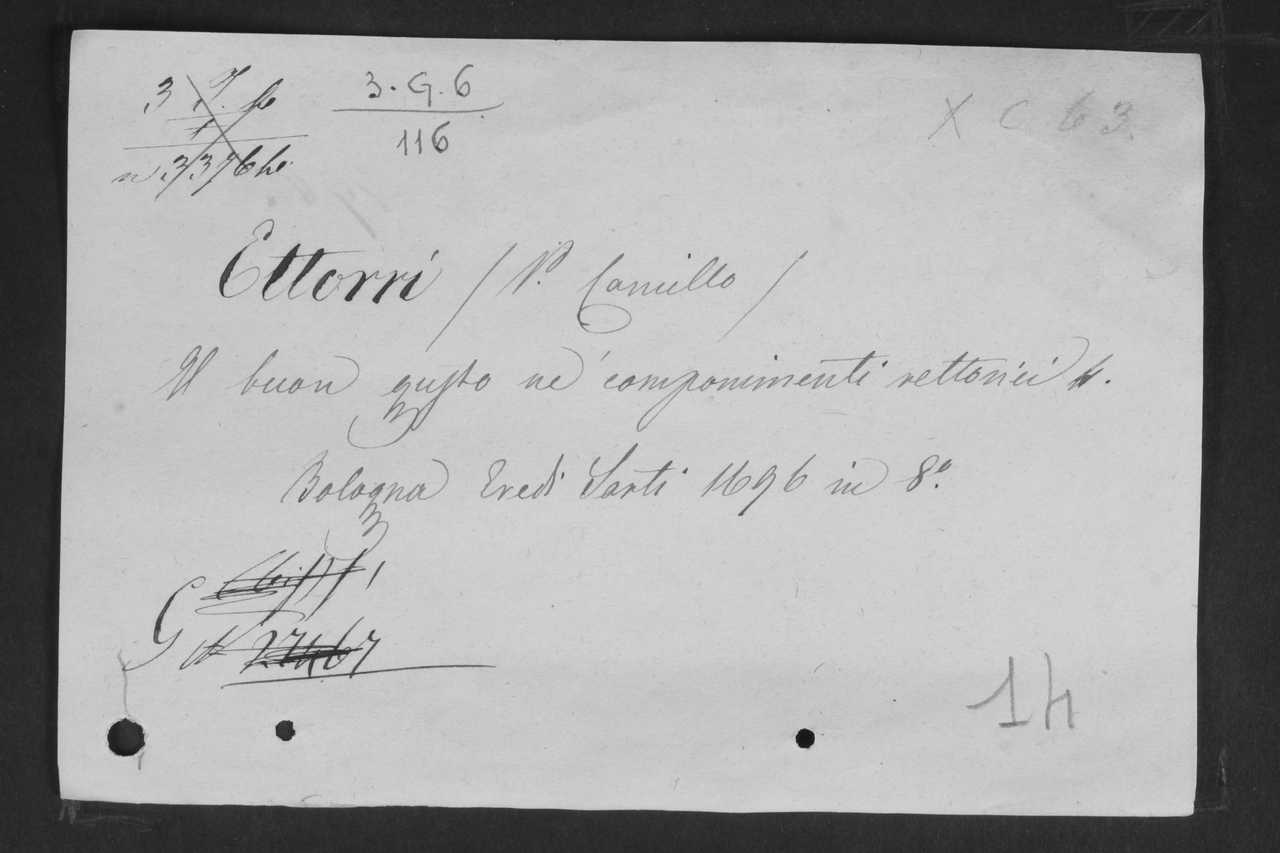 3. G. 6
116
X C 63.
Ettorri / P. Camillo /
Il buon gusto ne' componimenti rettorici
Bologna Eredi Sarti 1696 in 8º.
G
14